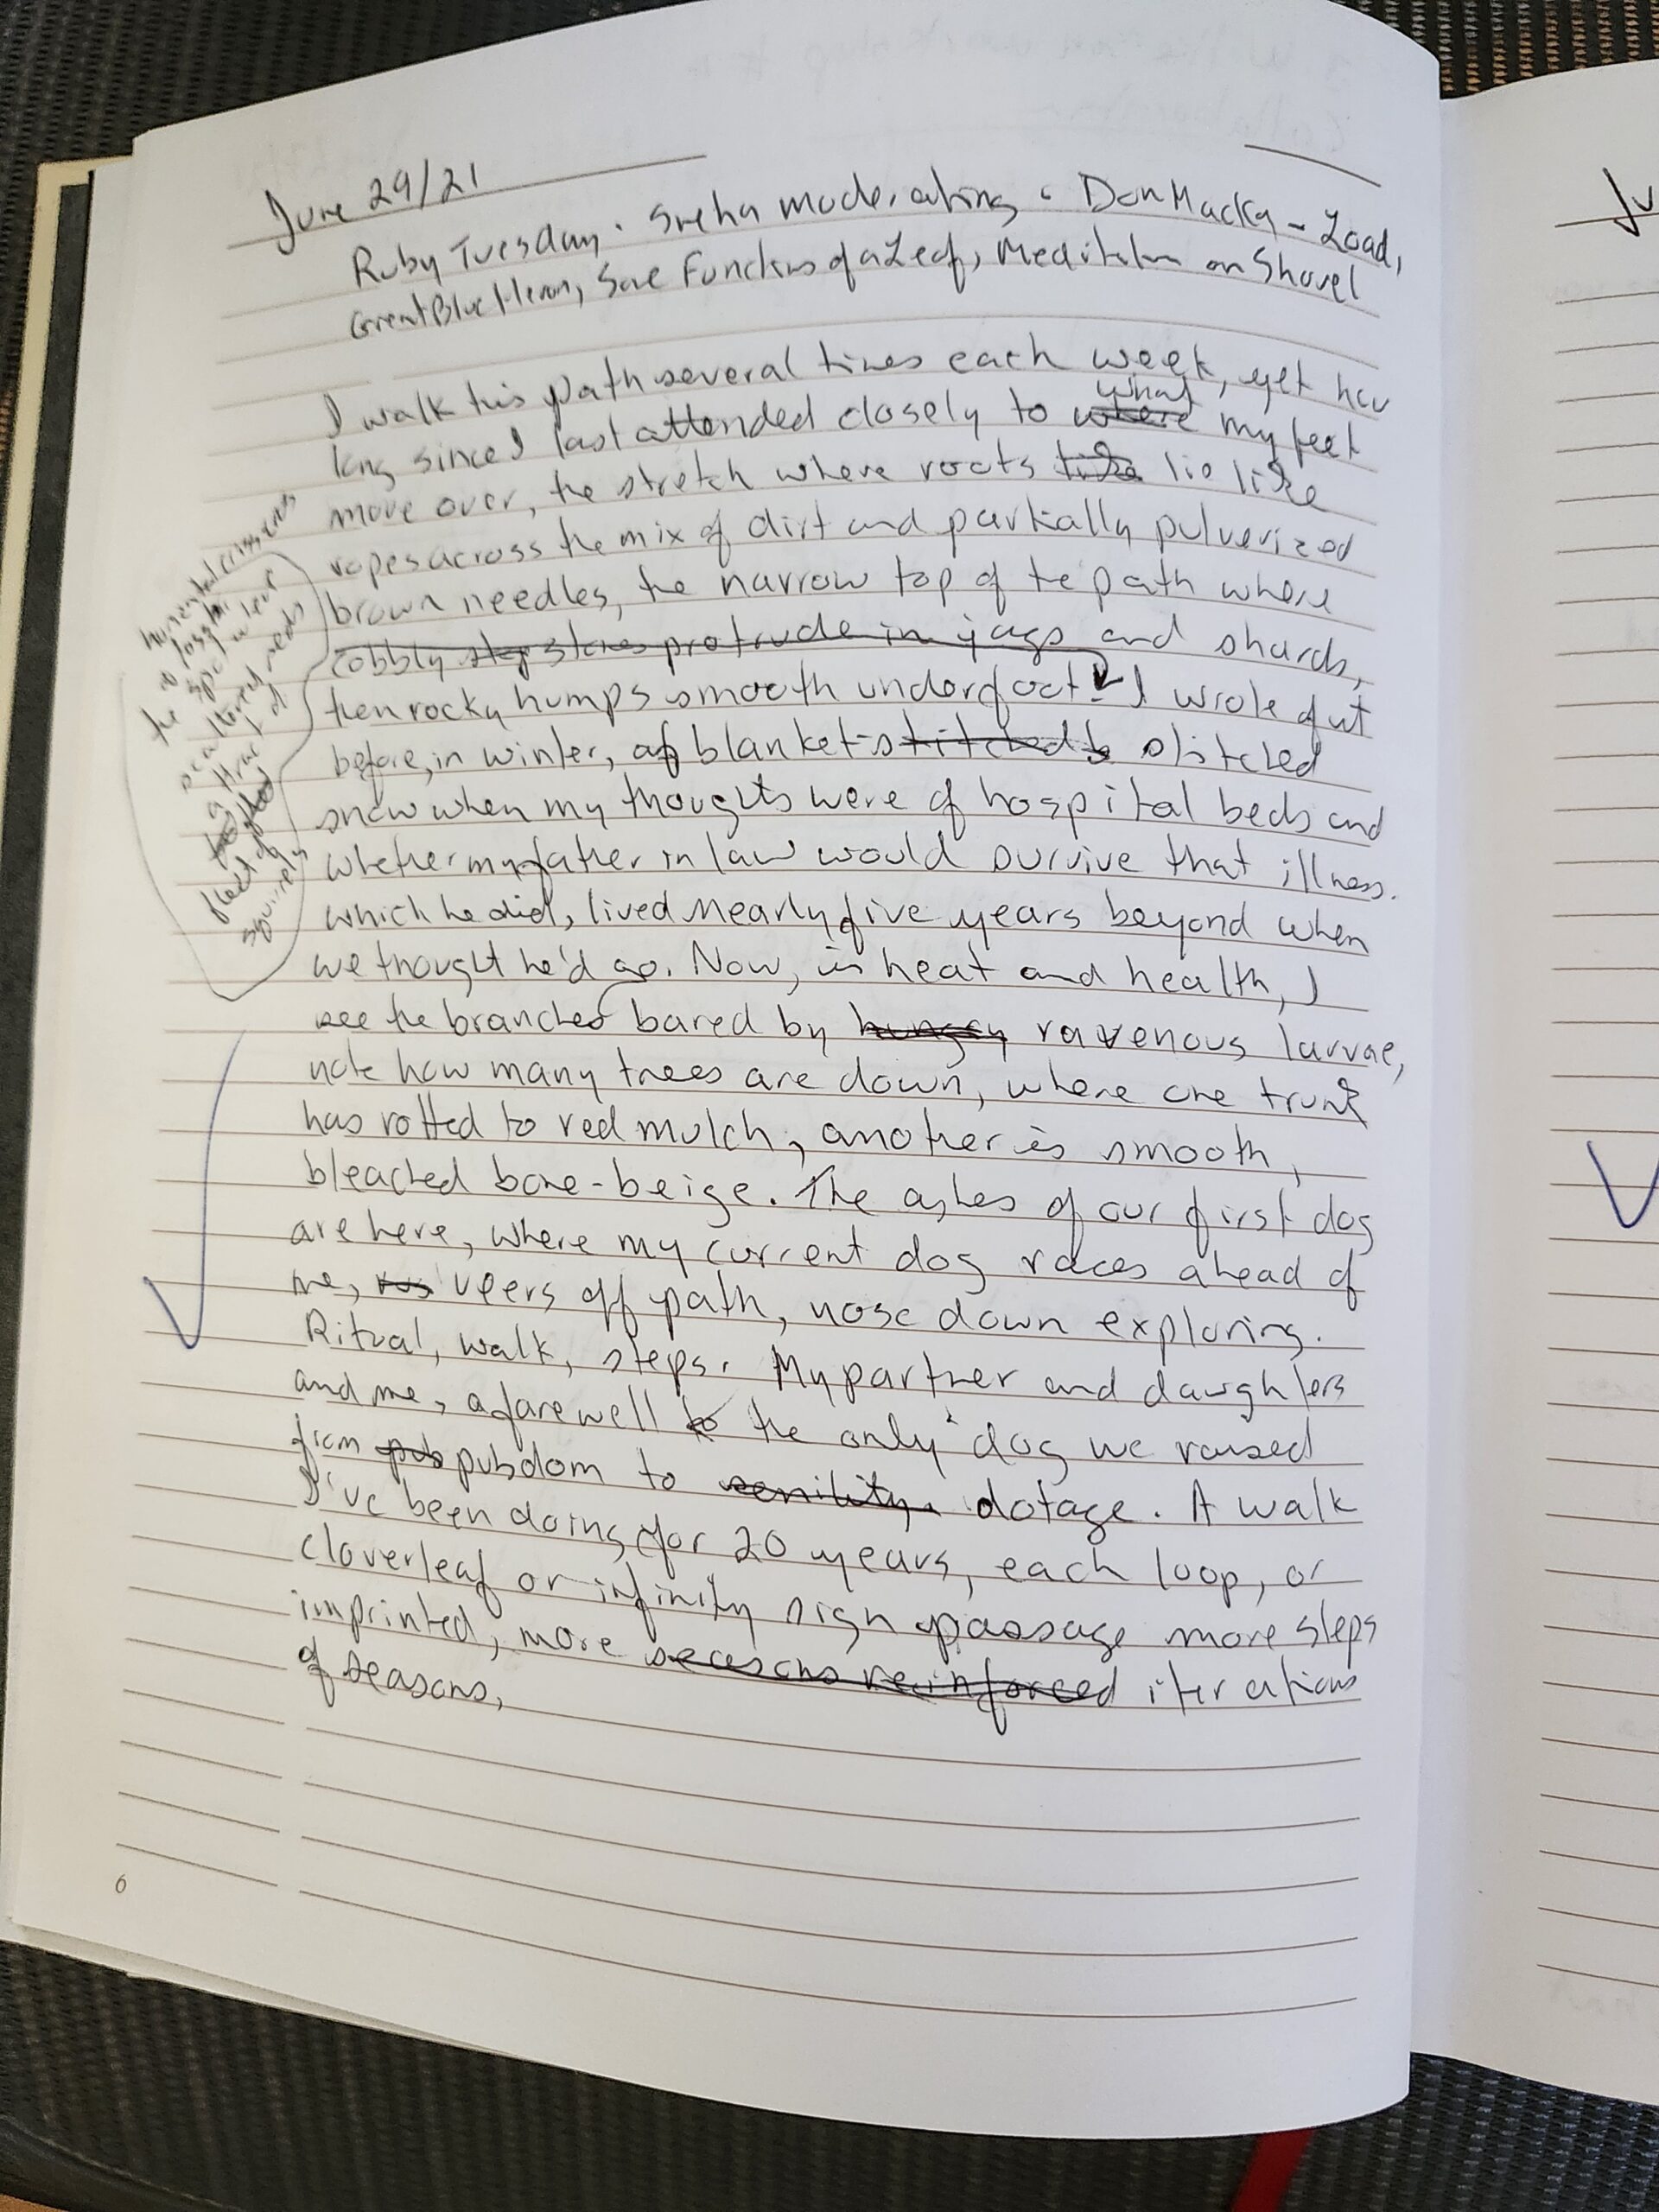 June 29/21
Ruby Tuesday. Sneha moderating. Don Macka - Load,
Great Blue Heron, Some Functions of a Leaf, Meditation on Shovel
I walk this path several times each week, yet how
what
long since I last attended closely to where my feet
move over, the stretch where roots like lie like
ropes across the mix of dirt and partially pulverized
brown needles, the narrow top of the path where
cobbly step stones protrude in jags and shards,
then rocky humps smooth underfoot. I wrote of it
before, in winter, of blanket-stitched stitched
snow when my thoughts were of hospital beds and
whether my father in law would survive that illness.
which he did, lived nearly five years beyond when
we thought he'd go. Now, in heat and health, I
see the branches bared by hungry ravenous larvae,
note how many trees are down, where one trunk
has rotted to red mulch, another is smooth,
bleached bone-beige. The ashes of our first dog
are here, where my current dog races ahead of
me, veers off path, nose down exploring.
Ritual, walk, steps. My partner and daughters
and me, a farewell to the only dog we raised
from pub pubdom to senility. dotage. A walk
I've been doing for 20 years, each loop, or
cloverleaf or infinity sign passage more steps
imprinted, more seasons reinforced iterations
of seasons,
horizontal
the
spot where
scattered
a that of
fleet of
squirrels
6
Ju